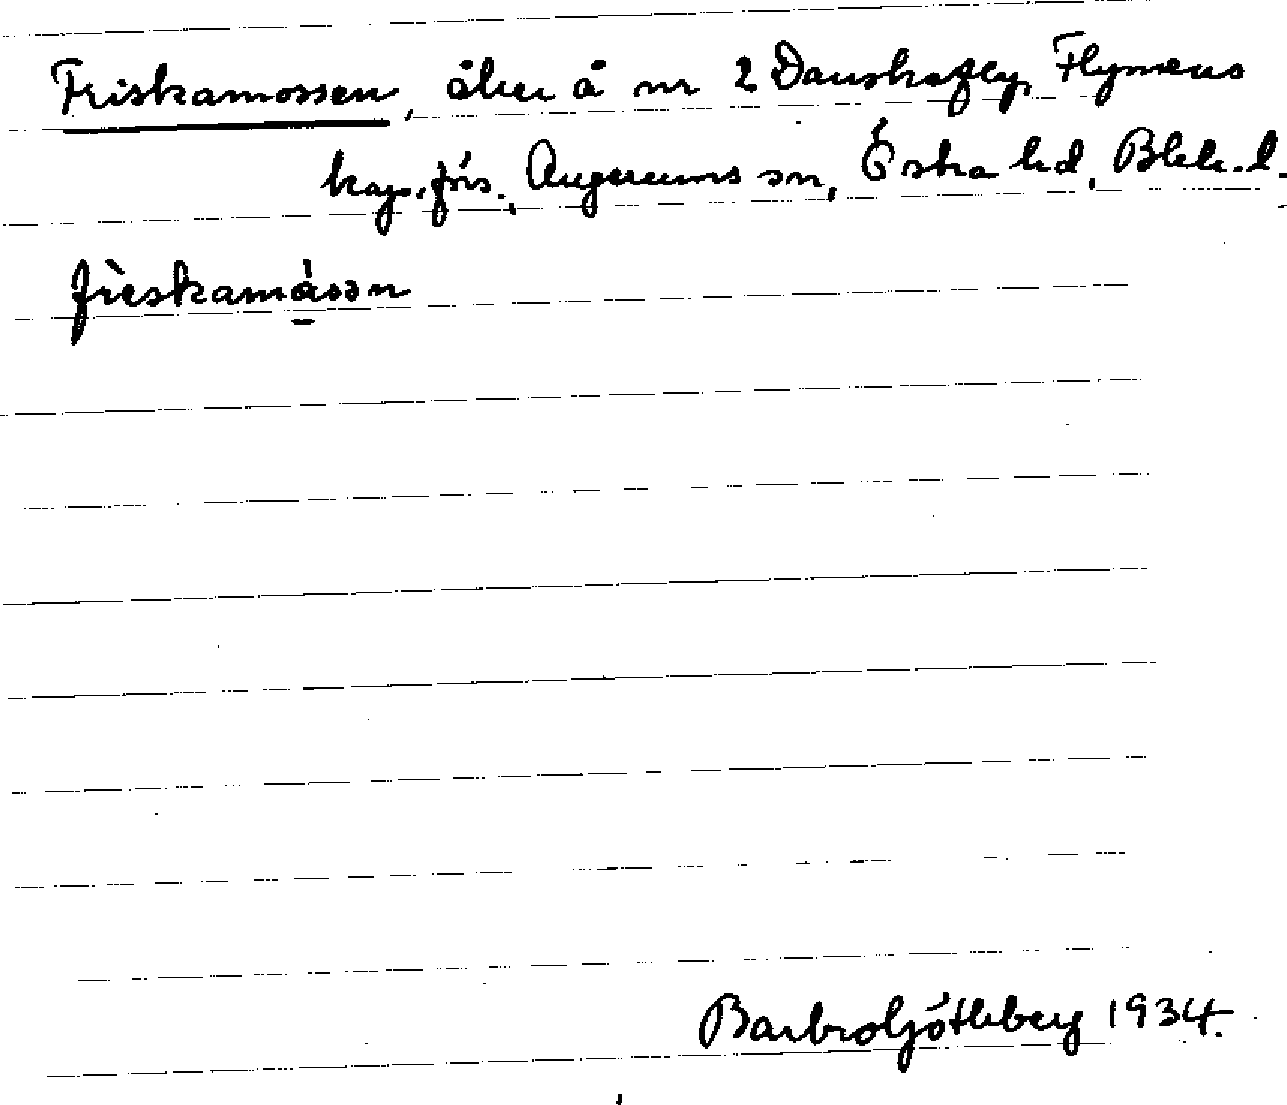 Friskamossen, åker å nr 2 Danskafly, Flymens
kap.förs., Augerums sn, Östra hd, Blek. l.
friskamåsən
Barbro Götleberg 1934.